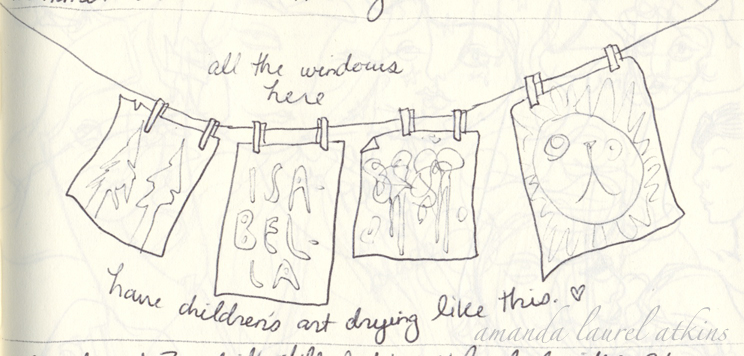 all the windows
here
ISA-
BEL-
LA
have children's art drying like this. ♡
amanda laurel atkins